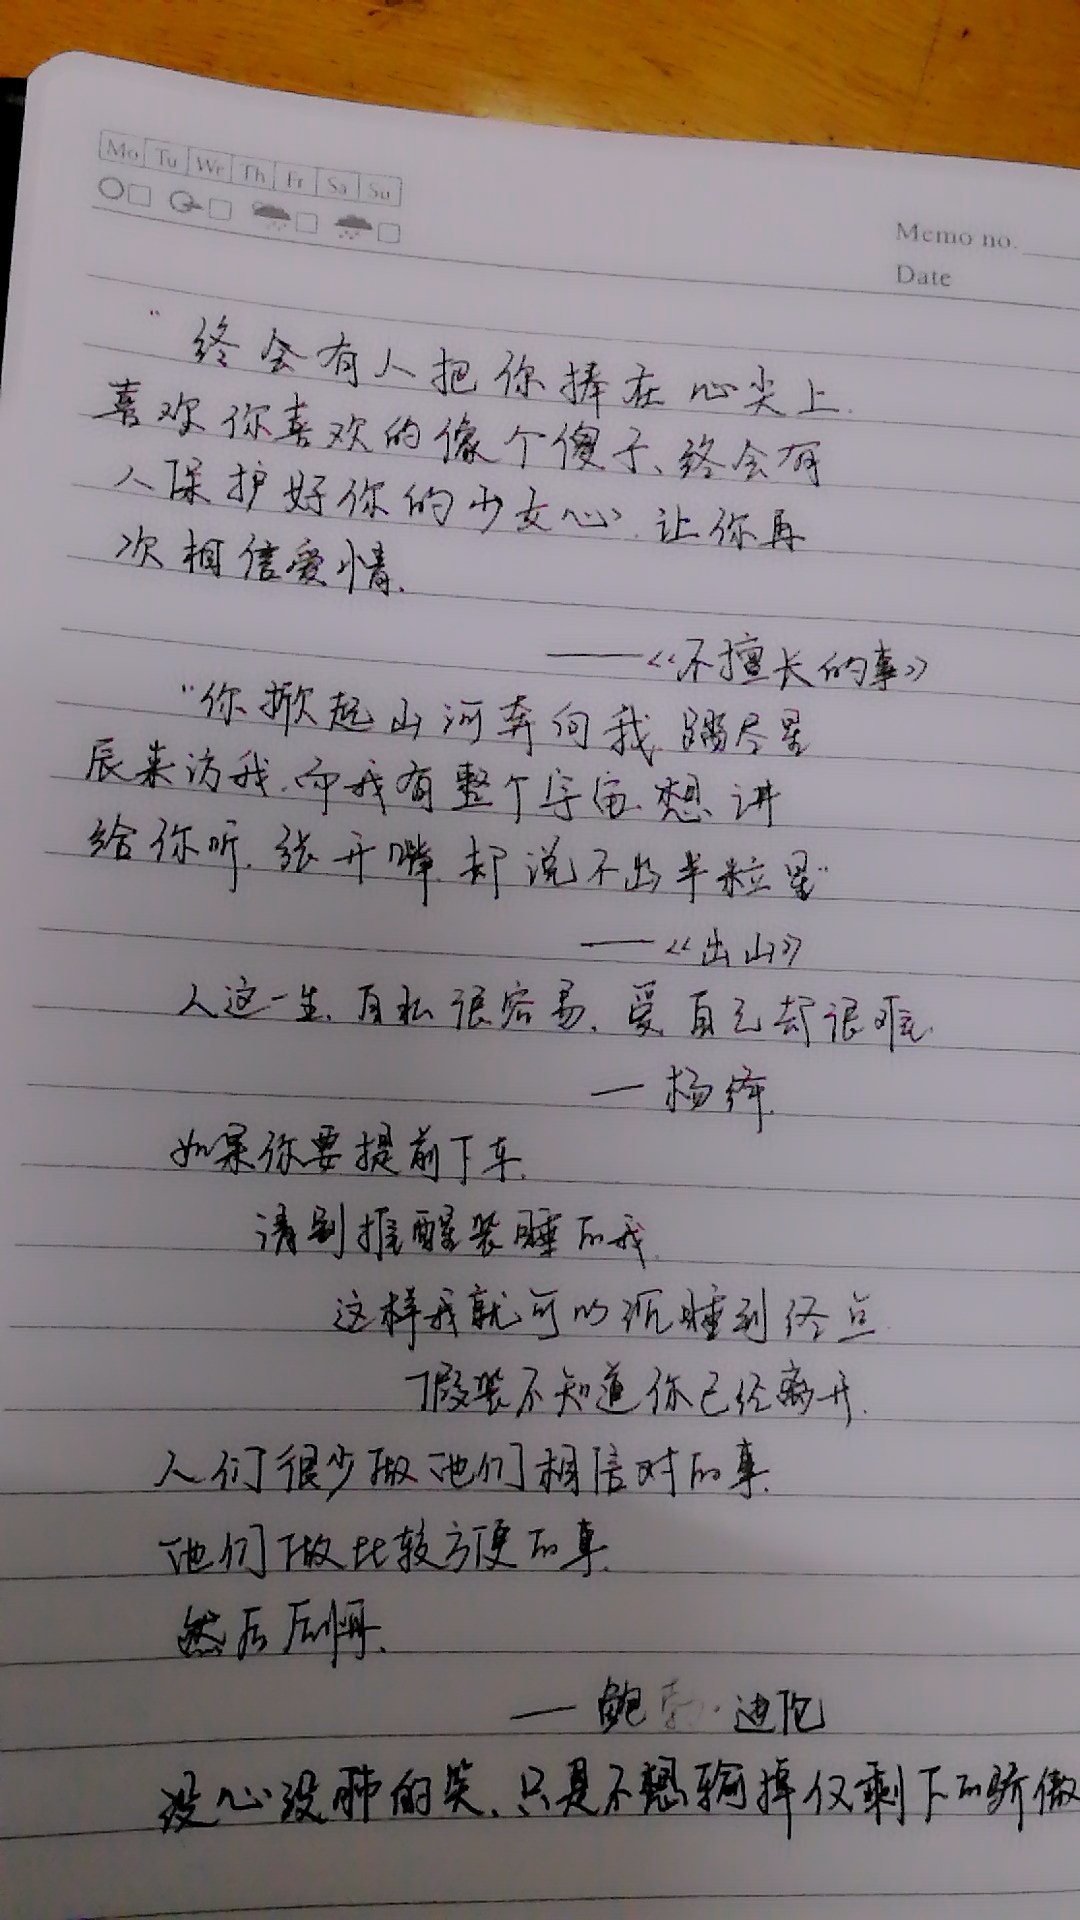 Mo Tu We Th Fr Sa Su
Memo no.
Date
“终会有人把你捧在心尖上.
喜欢你喜欢的像个傻子、终会有
人保护好你的少女心, 让你再
次相信爱情.
——《不擅长的事》
“你掀起山河奔向我, 踏尽星
辰来访我.而我有整个宇宙.想讲
给你听.张开嘴却说不出半粒星”
——《出山》
人这一生.自私很容易.爱自己却很难.
—杨绛.
如果你要提前下车.
请别推醒装睡的我.
这样我就可以沉睡到终点
假装不知道你已经离开.
人们很少做他们相信对的事.
他们做比较方便的事.
然后后悔.
—鲍勃·迪伦
没心没肺的笑.只是不想输掉仅剩下的骄傲